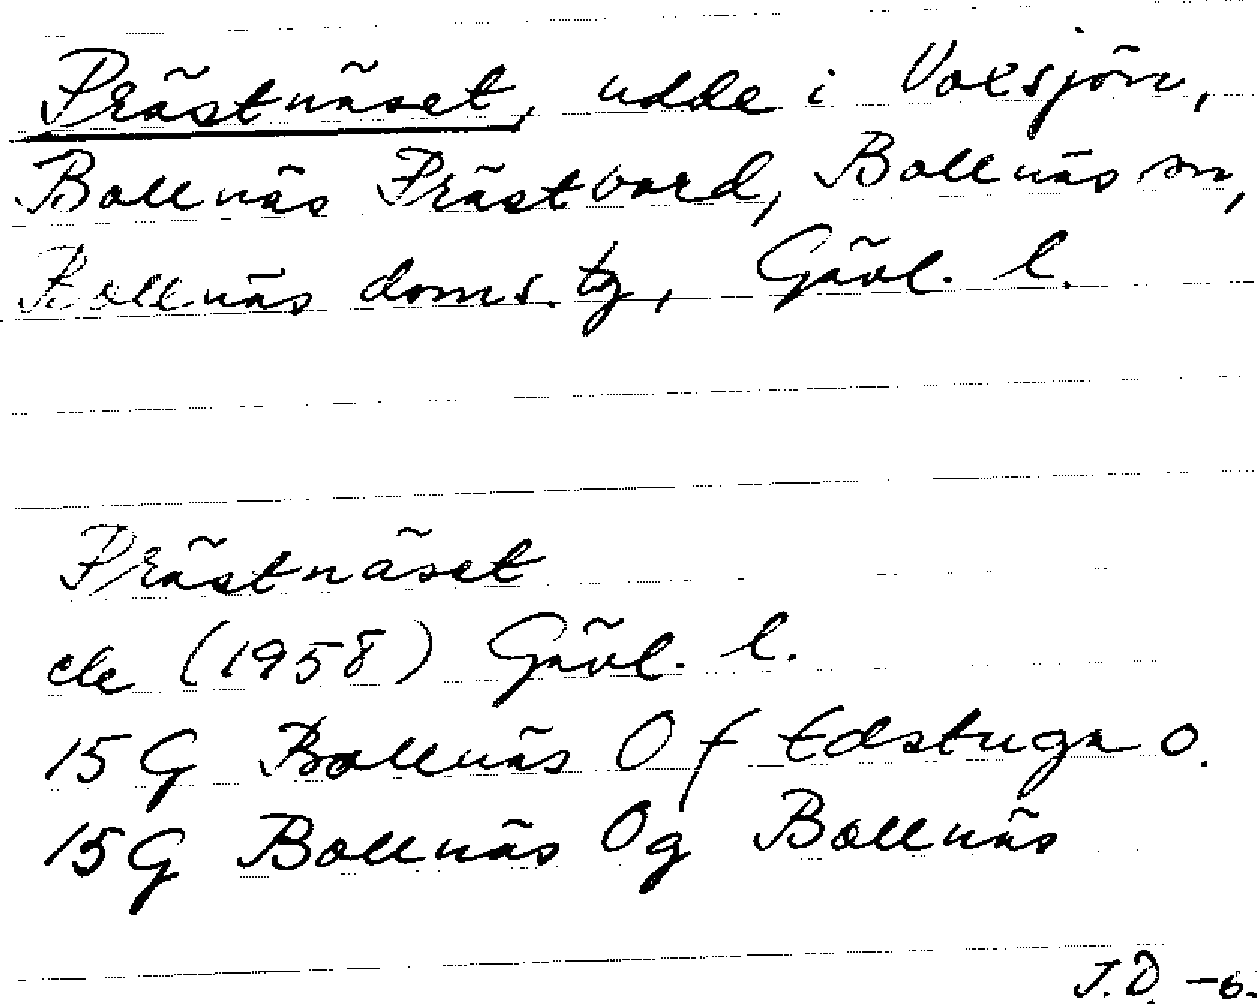 Prästnäset, udde i Voxsjön,
Bollnäs Prästbord, Bollnäs sn,
Bollnäs doms. tg, Gävl. l.
Prästnäset
ek (1958) Gävl. l.
15 G Bollnäs 0 f Edstuga o.
15 G Bollnäs 0g Bollnäs
J.D. -6